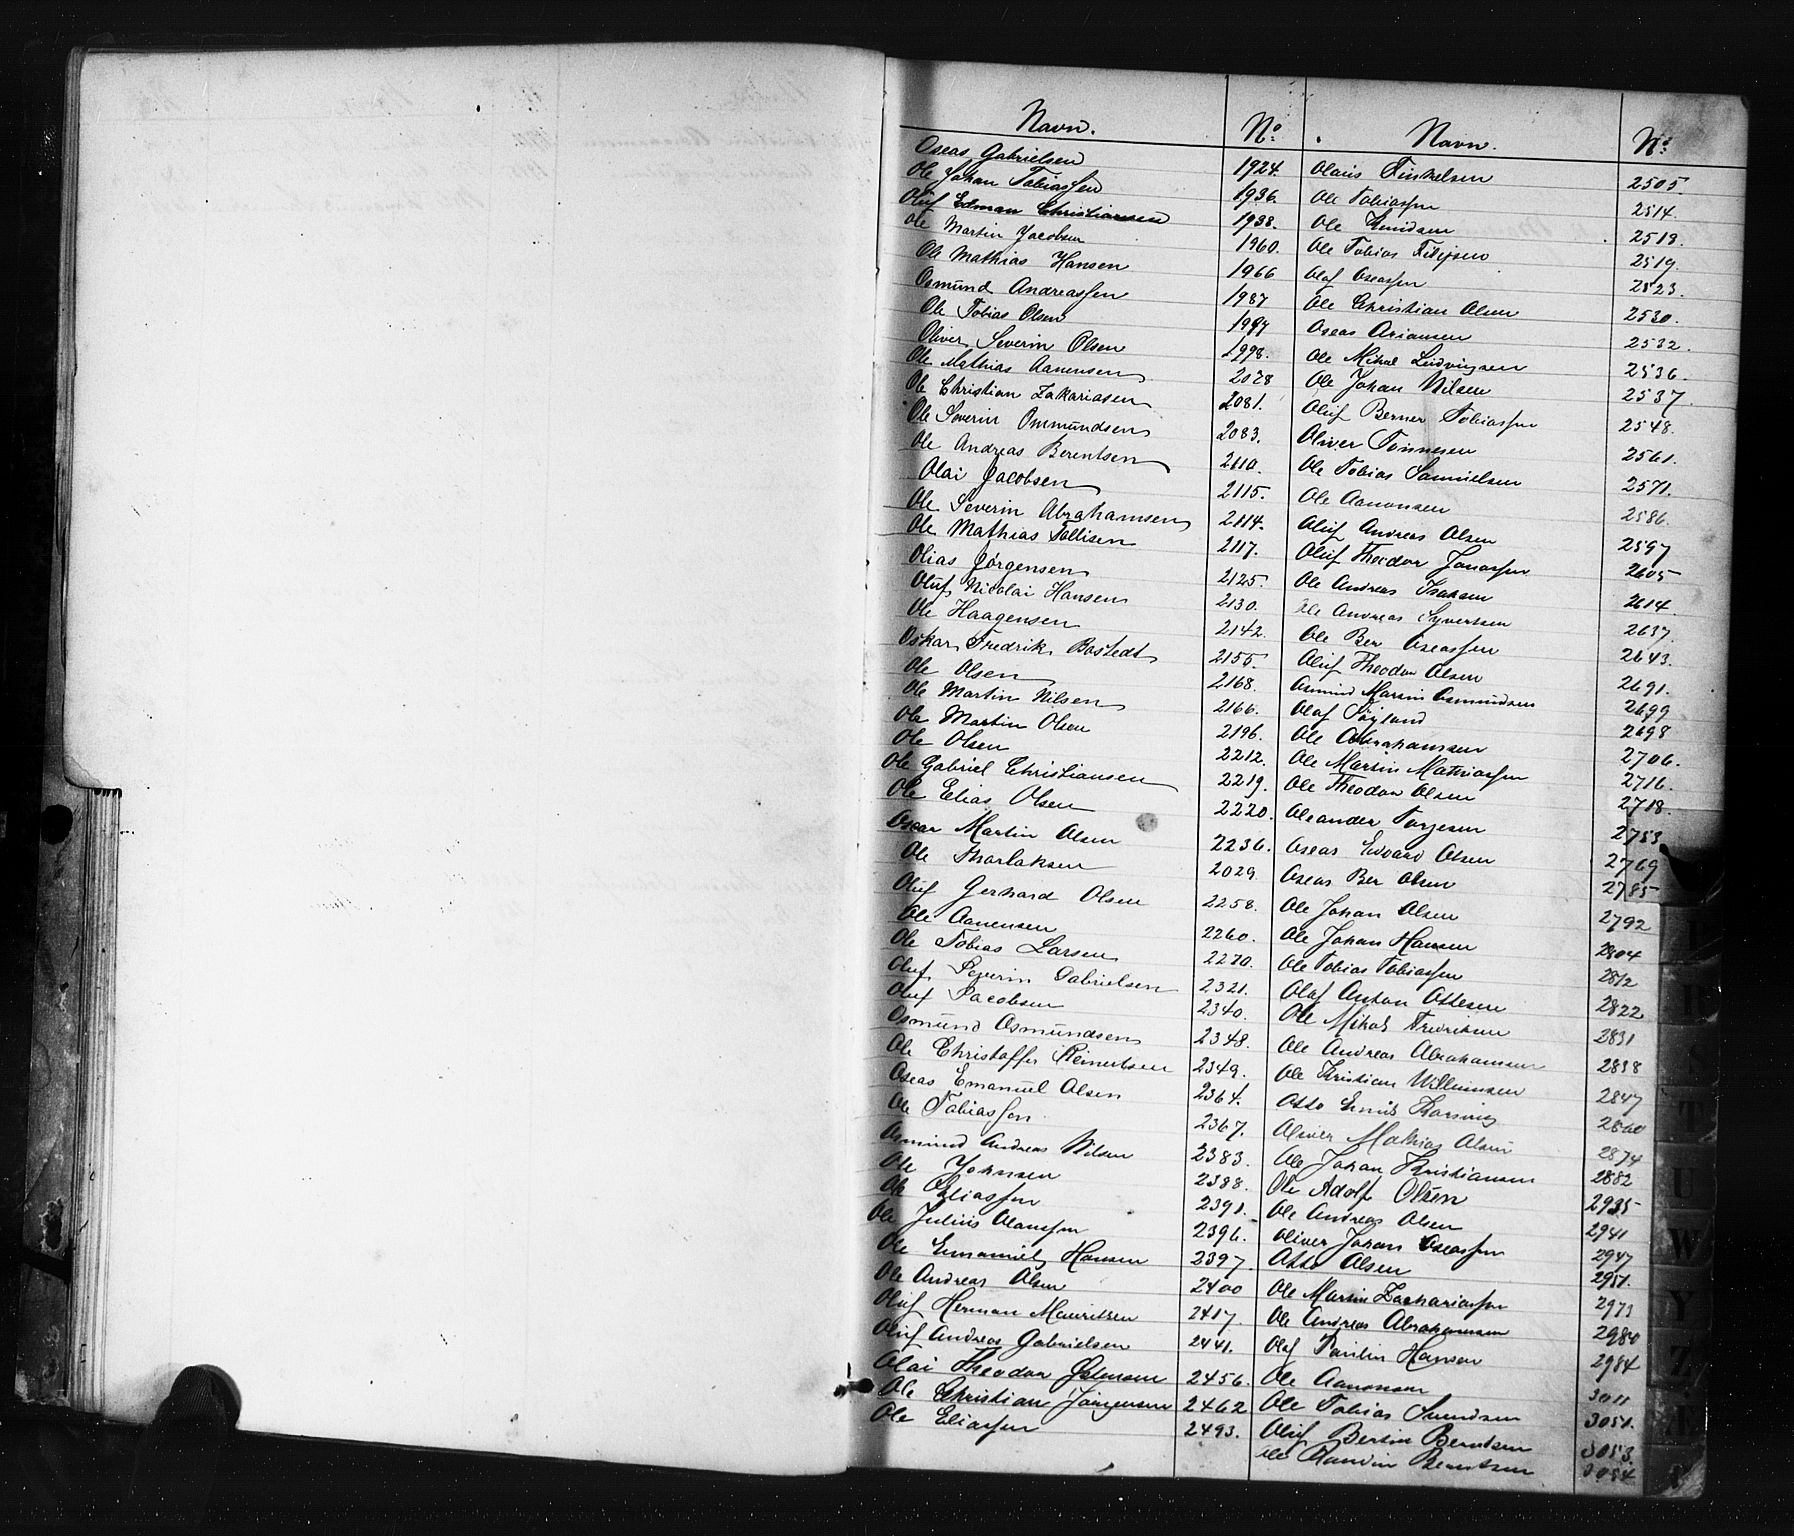 Navn. No. Navn. No.
Oseas Gabrielsen 1924. Olaus Finkelsen 2505
Ole Johan Tobiassen 1936. Ole Tobiassen 2514.
Oluf Edman Christiansen 1938. Ole 2518.
Ole Martin Jacobsen 1960. Ole Tobias Filipsen 2519.
Ole Mathias Hansen 1966 Olaf Oseassen 2523.
Osmund Andreassen 1987 Ole Christian Olsen 2530.
Ole Tobias Olsen 1994 Oseas Ariansen 2532.
Oliver Severin Olsen 1998. Ole Mikal Ludvigsen 2536.
Ole Mathias Aanensen 2078 Ole Johan Nilsen 2537.
Ole Christian Zakariasen 2081. Oluf Berner Tobiassen 2548.
Ole Severin Ommundsen 2083. Oliver Tønnesen 2561.
Ole Andreas Berentsen 2110. Ole Tobias Samuelsen 2571.
Olai Jacobsen 2115. Ole Aanonsen 2586.
Ole Severin Abrahamsen 2114. Oluf Andreas Olsen 2597
Ole Mathias Tollisen 2117. Oluf Theodor Jonassen 2605
Olias Jørgensen 2125. Ole Andreas Isaksen 2614
Oluf Nicolai Hansen 2130. Ole Andreas Syvertsen 2637.
Ole Haagensen 2142. Ole Ber Oseassen 2643.
Oskar Fredrik Bostedt 2155. Oluf Theodor Olsen 2691.
Ole Olsen 2168. Osmund Martin Osmundsen 2699
Ole Martin Nilsen 2166. Olaf Føyland 2698
Ole Martin Olsen 2196. Ole Abrahamsen 2706.
Ole Olsen 2212. Ole Martin Mathiassen 2716.
Ole Gabriel Christiansen 2219. Ole Theodor Olsen 2718.
Ole Elias Olsen 2220. Oleander Torgesen 2753
Oscar Martin Olsen 2236. Oseas Edvard Olsen 2769
Ole Thorlaksen 2029 Oseas Ber Olsen 2785
Oluf Gerhard Olsen 2258. Ole Johan Olsen 2792
Ole Aanensen 2260. Ole Johan Hansen 2804
Ole Tobias Larsen 2270. Ole Tobias Tobiassen 2812
Oluf Severin Gabrielsen 2321. Olaf Anton Ottesen 2822
Oluf Jacobsen 2340. Ole Mikal Fredriksen 2831
Osmund Osmundsen 2348. Ole Andreas Abrahamsen 2838
Ole Christoffer Reinertsen 2349. Ole Kristian Willumsen 2847
Oseas Emanuel Olsen 2364. Otto Ernst 2860
Ole Tobiassen 2367. Oliver Mathias Olsen 2874
Osmund Andreas Nilsen 2383. Ole Johan Kristiansen 2882
Ole Johnsen 2388. Ole Adolf Olsen 2935
Ole Eliassen 2391. Ole Andreas Olsen 2941
Ole Julius Olaussen 2396. Oliver Johan Oseassen 2947
Ole Emanuel Hansen 2397. Otto Olsen 2951.
Ole Andreas Olsen 2400 Ole Martin Zachariassen 2973
Oluf Herman Mauritsen 2417. Ole Andreas Abrahamsen 2980
Oluf Andreas Gabrielsen 2441. Olaf Paulin Hansen 2984
Olai Theodor Østensen 2456. Ole Aanonsen 3011
Ole Christian Jörgensen 2462 Ole Tobias Svendsen 3051.
Ole Eliassen 2493. Oluf Bertin Berntsen 3053.
Ole Berntsen 3054
P
R
S
T
U
W
Y
Z
Æ